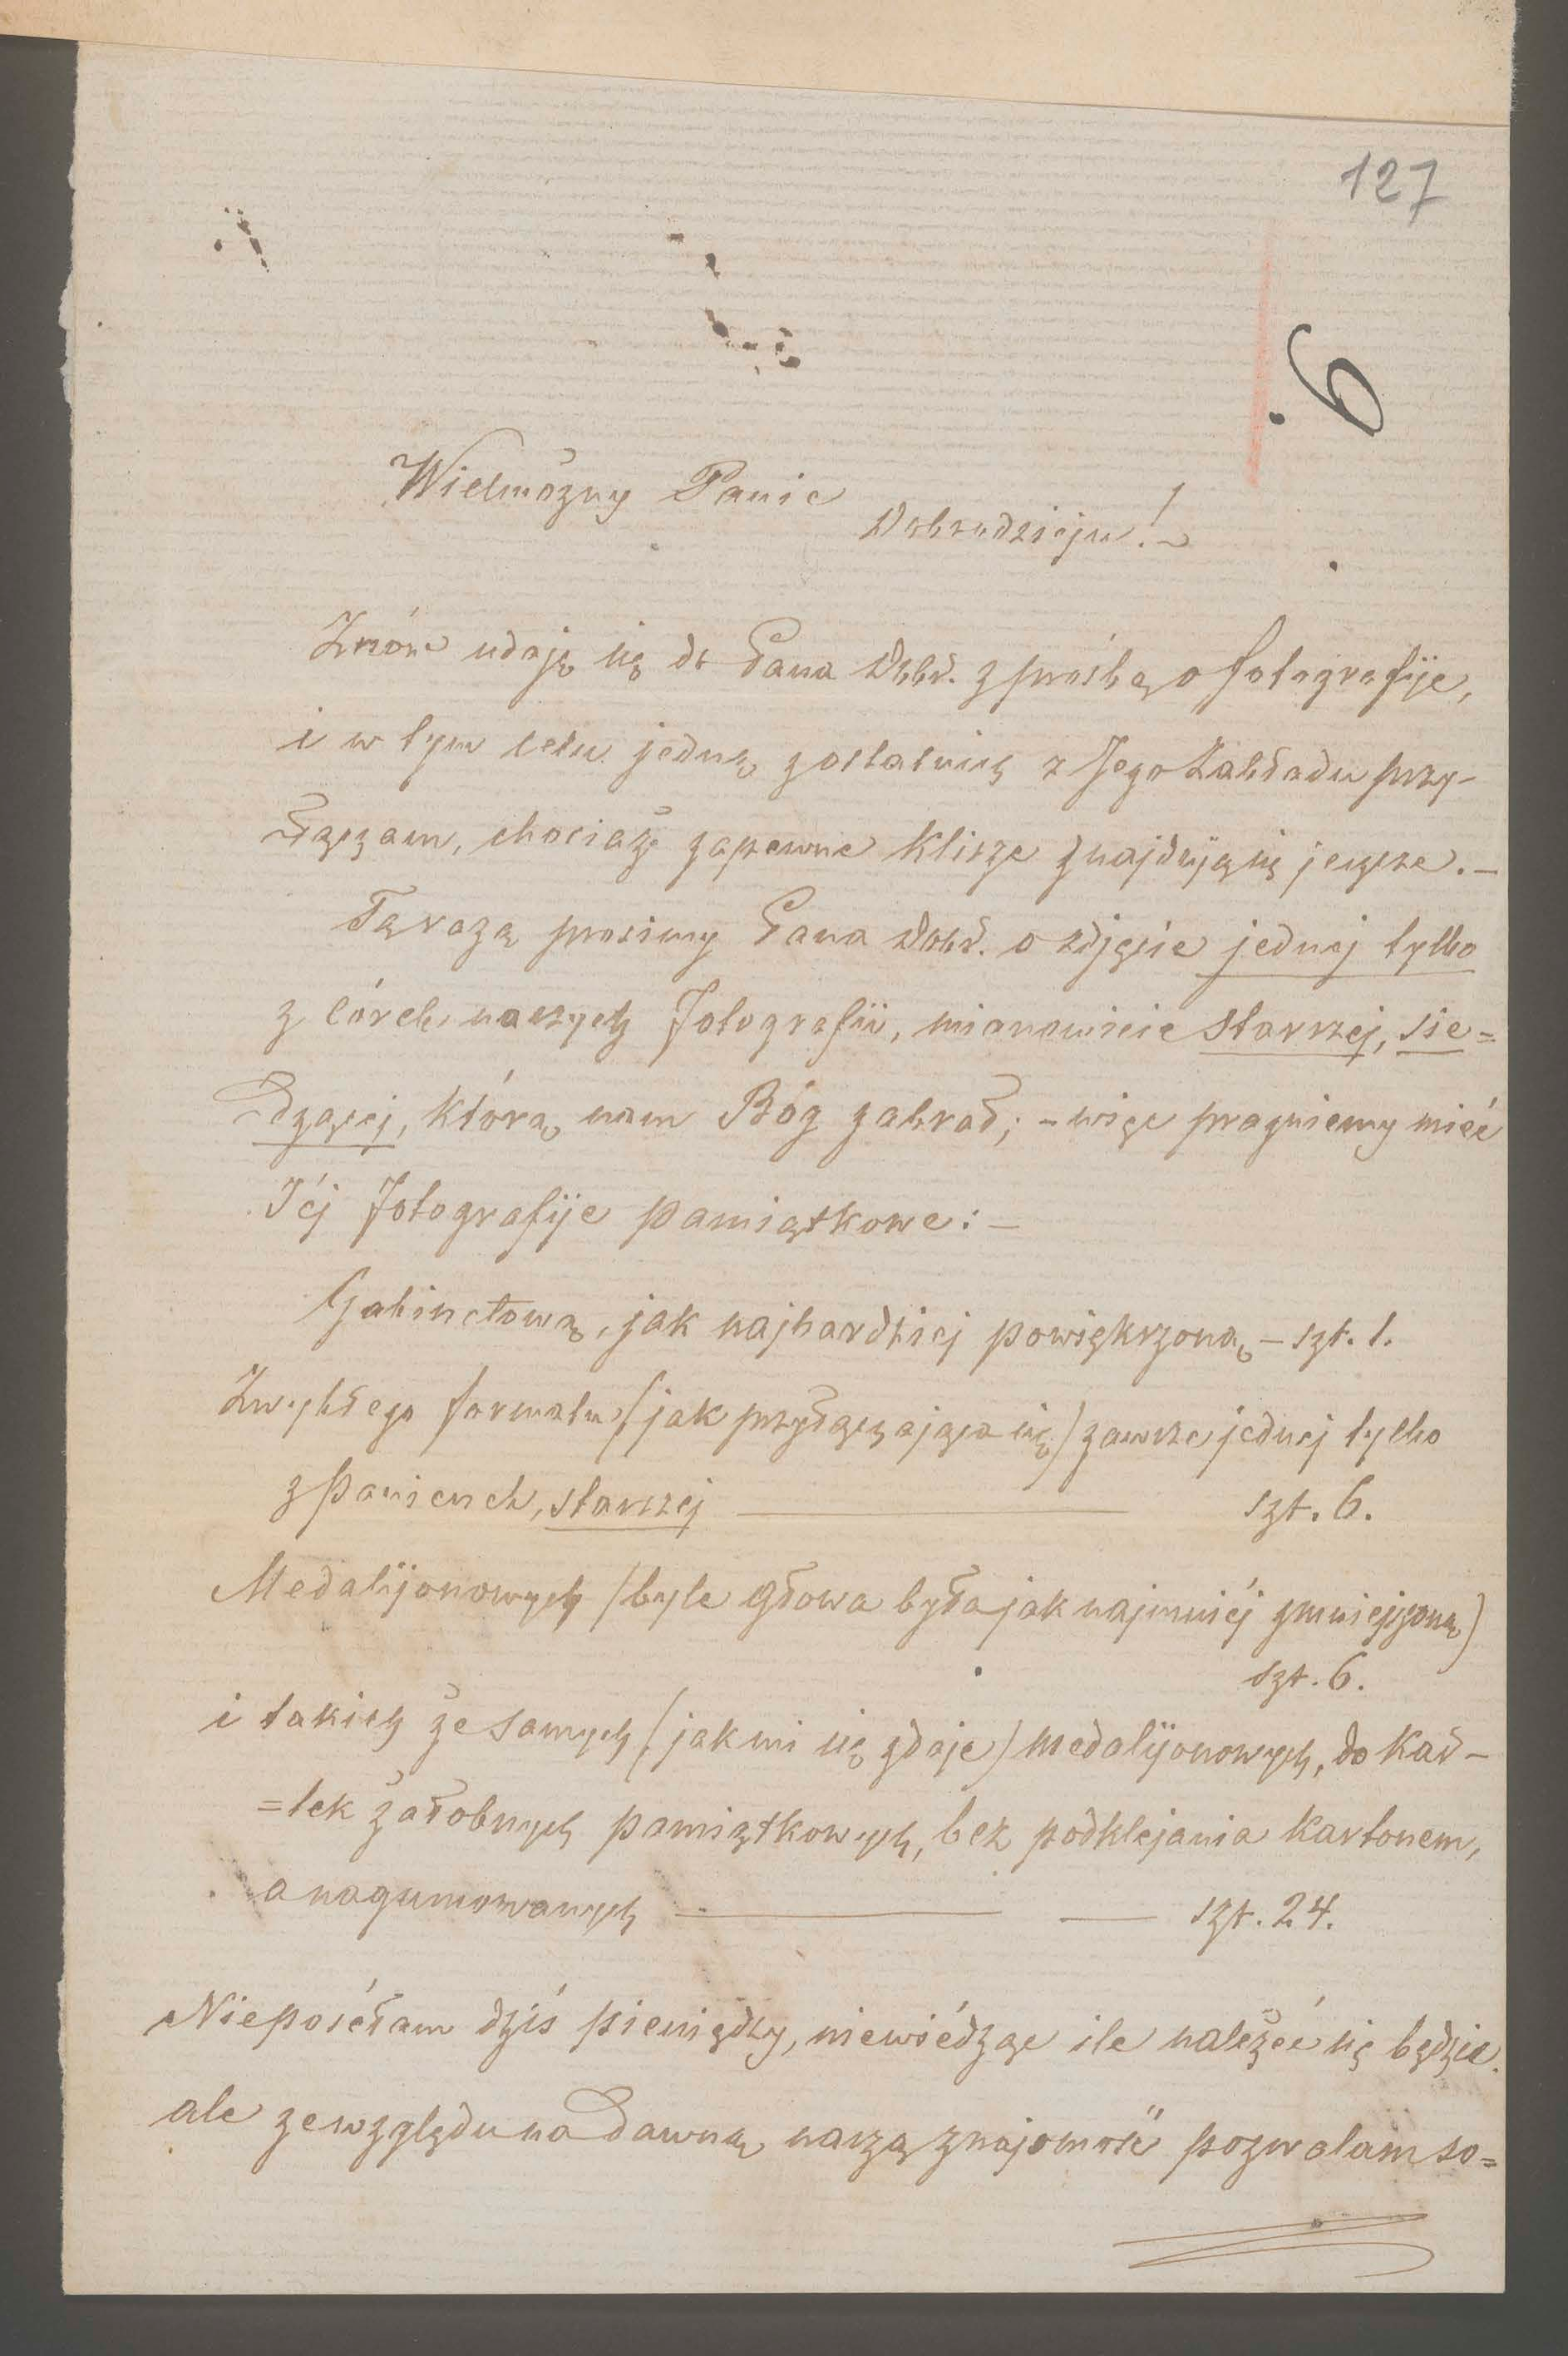 127
9.
Wielmożny Panie
Dobrodzieju!
Znów udaję się do Pana Dobr. z prośbą o fotografije,
i w tym celu jedną z ostatnich z Jego Zakładu przy-
łączam, chociaż zapewne klisze znajdują się jeszcze. —
Tą razą prosimy Pana Dobr. o zdjęcie jednej tylko
z córek naszych fotografii, mianowicie starszej, sie=
dzącej, którą nam Bóg zabrał; – więc pragniemy mieć
Jéj fotografije pamiątkowe: —
Gabinetową, jak najbardziej powiększoną – szt. 1.
Zwykłego formatu (jak przyłączająca się) zawsze jednej tylko
z panienek, starszej — szt. 6.
Medalijonowych (byle głowa była jak najmniéj zmniejszoną)
szt. 6.
i takich że samych (jak mi się zdaje) medalijonowych, do kar-
=tek żałobnych pamiątkowych, bez podklejania kartonem,
a nagumowanych — — szt. 24.
Nieposéłam dziś pieniędzy, niewiédząc ile należeć się będzie.
ale ze względu na dawną naszą znajomość pozwalam so=